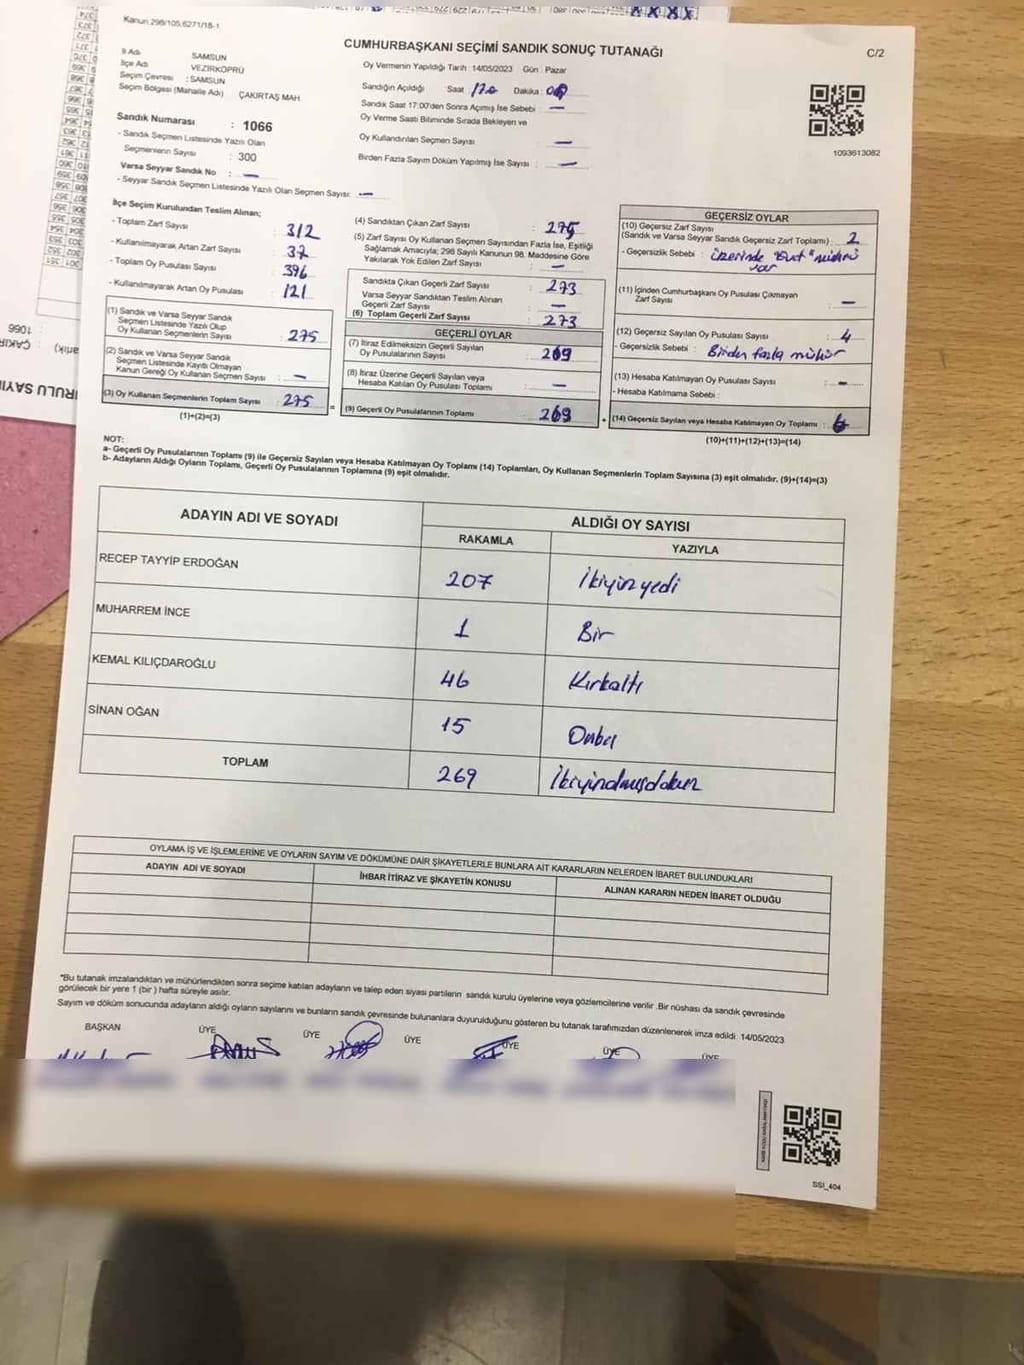 Kanun:298/105;6271/18-1
CUMHURBAŞKANI SEÇİMİ SANDIK SONUÇ TUTANAĞI
C/2
İl Adı SAMSUN
İlçe Adı VEZİRKÖPRÜ
Seçim Çevresi : SAMSUN
Seçim Bölgesi (Mahalle Adı) ÇAKIRTAŞ MAH
Oy Vermenin Yapıldığı Tarih : 14/05/2023 Gün : Pazar
Sandığın Açıldığı Saat Dakika:
Sandık Saat 17:00'den Sonra Açımış İse Sebebi : —
Oy Verme Saati Bitiminde Sırada Bekleyen ve
Oy Kullandırılan Seçmen Sayısı : —
Birden Fazla Sayım Döküm Yapılmış İse Sayısı : —
1093613082
Sandık Numarası : 1066
- Sandık Seçmen Listesinde Yazılı Olan
Seçmenlerin Sayısı : 300
Varsa Seyyar Sandık No : —
- Seyyar Sandık Listesinde Yazılı Olan Seçmen Sayısı: —
İlçe Seçim Kurulundan Teslim Alınan;
- Toplam Zarf Sayısı : 312
- Kullanılmayarak Artan Zarf Sayısı : 37
- Toplam Oy Pusulası Sayısı : 396
- Kullanılmayarak Artan Oy Pusulası : 121
(1) Sandık ve Varsa Seyyar Sandık
Seçmen Listesinde Yazılı Olup
Oy Kullanan Seçmenlerin Sayısı : 275
(2) Sandık ve Varsa Seyyar Sandık
Seçmen Listesinde Kayıtlı Olmayan
Kanun Gereği Oy Kullanan Seçmen Sayısı : —
(3) Oy Kullanan Seçmenlerin Toplam Sayısı : 275
(1)+(2)=(3)
(4) Sandıktan Çıkan Zarf Sayısı : 275
(5) Zarf Sayısı Oy Kullanan Seçmen Sayısından Fazla İse, Eşitliği
Sağlamak Amacıyla; 298 Sayılı Kanunun 98. Maddesine Göre
Yakılarak Yok Edilen Zarf Sayısı : —
Sandıkta Çıkan Geçerli Zarf Sayısı : 273
Varsa Seyyar Sandıktan Teslim Alınan
Geçerli Zarf Sayısı : —
(6) Toplam Geçerli Zarf Sayısı : 273
GEÇERLİ OYLAR
(7) İtiraz Edilmeksizin Geçerli Sayılan
Oy Pusulalarının Sayısı : 269
(8) İtiraz Üzerine Geçerli Sayılan veya
Hesaba Katılan Oy Pusulası Toplamı : —
(9) Geçerli Oy Pusulalarının Toplamı : 269
GEÇERSİZ OYLAR
(10) Geçersiz Zarf Sayısı
(Sandık ve Varsa Seyyar Sandık Geçersiz Zarf Toplamı) : 2
- Geçersizlik Sebebi : üzerinde "Evet" mührü
var
(11) İçinden Cumhurbaşkanı Oy Pusulası Çıkmayan
Zarf Sayısı : —
(12) Geçersiz Sayılan Oy Pusulası Sayısı : 4
- Geçersizlik Sebebi : Birden fazla mühür
(13) Hesaba Katılmayan Oy Pusulası Sayısı : —
- Hesaba Katılmama Sebebi :
(14) Geçersiz Sayılan veya Hesaba Katılmayan Oy Toplamı : 6
(10)+(11)+(12)+(13)=(14)
NOT:
a- Geçerli Oy Pusulalarının Toplamı (9) ile Geçersiz Sayılan veya Hesaba Katılmayan Oy Toplamı (14) Toplamları, Oy Kullanan Seçmenlerin Toplam Sayısına (3) eşit olmalıdır. (9)+(14)=(3)
b- Adayların Aldığı Oyların Toplamı, Geçerli Oy Pusulalarının Toplamına (9) eşit olmalıdır.
ADAYIN ADI VE SOYADI ALDIĞI OY SAYISI
RAKAMLA YAZIYLA
RECEP TAYYİP ERDOĞAN 207 ikiyüzyedi
MUHARREM İNCE 1 Bir
KEMAL KILIÇDAROĞLU 46 Kırkaltı
SİNAN OĞAN 15 Onbeş
TOPLAM 269 ikiyüzaltmışdokuz
OYLAMA İŞ VE İŞLEMLERİNE VE OYLARIN SAYIM VE DÖKÜMÜNE DAİR ŞİKAYETLERLE BUNLARA AİT KARARLARIN NELERDEN İBARET BULUNDUKLARI
ADAYIN ADI VE SOYADI İHBAR İTİRAZ VE ŞİKAYETİN KONUSU ALINAN KARARIN NEDEN İBARET OLDUĞU
"Bu tutanak imzalandıktan ve mühürlendikten sonra seçime katılan adayların ve talep eden siyasi partilerin sandık kurulu üyelerine veya gözlemcilerine verilir .Bir nüshası da sandık çevresinde
görülecek bir yere 1 (bir ) hafta süreyle asılır.
Sayım ve döküm sonucunda adayların aldığı oyların sayılarını ve bunların sandık çevresinde bulunanlara duyurulduğunu gösteren bu tutanak tarafımızdan düzenlenerek imza edildi. 14/05/2023
BAŞKAN ÜYE ÜYE ÜYE ÜYE ÜYE ÜYE
SSI_404